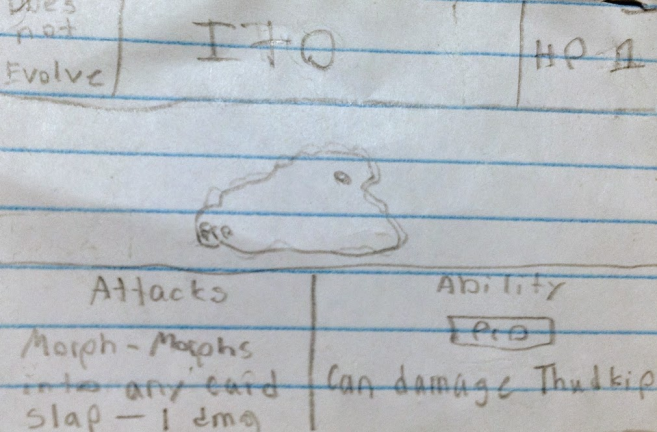 Does
not
Evolve
ITO
HP 1
Pro
Attacks
Morph - Morphs
into any card
slap - 1 dmg
Ability
Pro
Can damage Thudkip